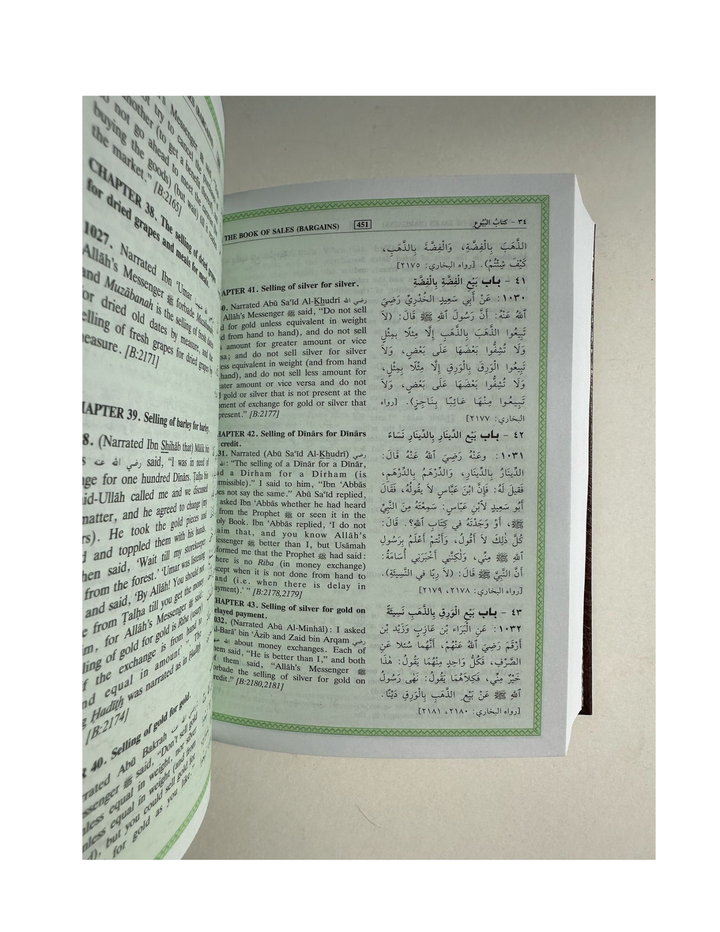 another (to get a benefit
not go ahead to meet the
buying the goods) (but wait) till it
the market." [B:2165]
CHAPTER 38. The selling of dried grapes
for dried grapes and meals for meals.
1027. Narrated Ibn 'Umar رضي الله عنهما
Allâh's Messenger ﷺ forbade Muzâbanah
and Muzâbanah is the selling of fresh
or dried old dates by measure, and the
elling of fresh grapes for dried grapes by
measure. [B:2171]
HAPTER 39. Selling of barley for barley.
8. (Narrated Ibn Shihâb that) Mâlik bin
s رضي الله عنه said, "I was in need of
nge for one hundred Dinârs. Talha bin
aid-Ullâh called me and we discussed
matter, and he agreed to change my
rs). He took the gold pieces and
d and toppled them with his hands,
hen said, 'Wait till my storekeeper
from the forest.' 'Umar was listening
and said, 'By Allâh! You should not
e from Talha till you get the money
m, for Allâh's Messenger ﷺ said,
ling of gold for gold is Ribâ (usury)
f the exchange is from hand to
nd equal in amount"
g Hadîth was narrated as in Hadîth
[B:2174]
R 40. Selling of gold for gold.
rrated Abû Bakrah
ssenger ﷺ said, "Don't sell gold
nless equal in weight, nor silver
nless equal in weight (and from
d), but you could sell gold for
for gold as you like."
THE BOOK OF SALES (BARGAINS) 451 ٣٤ – كتابُ البُيُوعِ
APTER 41. Selling of silver for silver.
0. Narrated Abû Sa'îd Al-Khudrî رضي الله
Allâh's Messenger ﷺ said, "Do not sell
d for gold unless equivalent in weight
d from hand to hand), and do not sell
amount for greater amount or vice
sa; and do not sell silver for silver
ess equivalent in weight (and from hand
hand), and do not sell less amount for
ater amount or vice versa and do not
l gold or silver that is not present at the
ment of exchange for gold or silver that
present." [B:2177]
HAPTER 42. Selling of Dinârs for Dinârs
credit.
31. Narrated (Abû Sa'îd Al-Khudrî) رضي
: "The selling of a Dînâr for a Dînâr,
d a Dirham for a Dirham (is
rmissible)." I said to him, "Ibn 'Abbâs
es not say the same." Abû Sa'îd replied,
asked Ibn 'Abbâs whether he had heard
from the Prophet ﷺ or seen it in the
oly Book. Ibn 'Abbâs replied, 'I do not
aim that, and you know Allâh's
essenger ﷺ better than I, but Usâmah
formed me that the Prophet ﷺ had said:
here is no Riba (in money exchange)
cept when it is not done from hand to
and (i.e. when there is delay in
ayment).' " [B:2178,2179]
HAPTER 43. Selling of silver for gold on
elayed payment.
032. Narrated (Abû Al-Minhâl): I asked
l-Barâ' bin 'Âzib and Zaid bin Arqam رضي
about money exchanges. Each of
em said, "He is better than I," and both
f them said, "Allâh's Messenger ﷺ
orbade the selling of silver for gold on
redit." [B:2180,2181]
الذَّهَبَ بِالْفِضَّةِ، وَالْفِضَّةَ بِالذَّهَبِ،
كَيْفَ شِئْتُمْ). [رواه البخاري: ٢١٧٥]
٤١ – باب بَيْعِ الْفِضَّةِ بِالْفِضَّةِ
١٠٣٠: عَنْ أَبِي سَعِيدٍ الْخُدْرِيِّ رَضِيَ
اللهُ عَنْهُ: أَنَّ رَسُولَ اللهِ ﷺ قَالَ: (لَا
تَبِيعُوا الذَّهَبَ بِالذَّهَبِ إِلَّا مِثْلًا بِمِثْلٍ
وَلَا تُشِفُّوا بَعْضَهَا عَلَى بَعْضٍ، وَلَا
تَبِيعُوا الْوَرِقَ بِالْوَرِقِ إِلَّا مِثْلًا بِمِثْلٍ،
وَلَا تُشِفُّوا بَعْضَهَا عَلَى بَعْضٍ، وَلَا
تَبِيعُوا مِنْهَا غَائِبًا بِنَاجِزٍ). [رواه
البخاري: ٢١٧٧]
٤٢ – باب بَيْعِ الدِّينَارِ بِالدِّينَارِ نَسَاءً
١٠٣١: وعَنْهُ رَضِيَ اللهُ عَنْهُ قَالَ:
الدِّينَارُ بِالدِّينَارِ، وَالدِّرْهَمُ بِالدِّرْهَمِ،
فَقيلَ لَهُ: فَإِنَّ ابْنَ عَبَّاسٍ لَا يَقُولُهُ، فَقَالَ
أَبُو سَعِيدٍ لِابْنِ عَبَّاسٍ: سَمِعْتَهُ مِنَ النَّبِيِّ
ﷺ، أَوْ وَجَدْتَهُ في كِتَابِ اللهِ؟. قَالَ:
كُلَّ ذٰلِكَ لَا أَقُولُ، وَأَنْتُمْ أَعْلَمُ بِرَسُولِ
اللهِ ﷺ مِنِّي، وَلٰكِنَّنِي أَخْبَرَنِي أُسَامَةُ:
أَنَّ النَّبِيَّ ﷺ قَالَ: (لَا رِبًا في النَّسِيئَةِ).
[رواه البخاري: ٢١٧٨، ٢١٧٩]
٤٣ – باب بَيْعِ الْوَرِقِ بِالذَّهَبِ نَسِيئَةً
١٠٣٢: عَنِ الْبَرَاءِ بْنِ عَازِبٍ وَزَيْدِ بْنِ
أَرْقَمَ رَضِيَ اللهُ عَنْهُمْ، أَنَّهُمَا سُئِلَا عَنِ
الصَّرْفِ، فَكُلُّ وَاحِدٍ مِنْهُمَا يَقُولُ: هٰذَا
خَيْرٌ مِنِّي، فَكِلَاهُمَا يَقُولُ: نَهٰى رَسُولُ
اللهِ ﷺ عَنْ بَيْعِ الذَّهَبِ بِالْوَرِقِ دَيْنًا.
[رواه البخاري: ٢١٨٠، ٢١٨١]